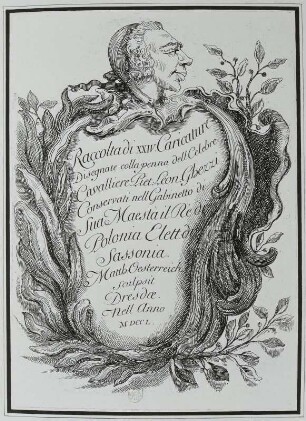 Raccolta di XXIV Caricature
Disegnate colla penna dell Celebre
Cavalliere Piet. Leon. Ghezzi
Conservati nell Gabinetto di
Sua Maestà il Re di
Polonia Elett. di
Sassonia.
Matth. Oesterreich
sculpsit
Dresdæ
Nell Anno
MDCCL